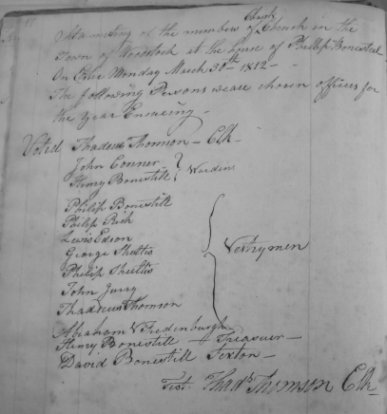 At a meeting of the members of Christs Church in the
Town of Woodstock at the house of Phillip Bonesteel
On Monday March 30th 1812 -
The following Persons weare chosen officers for
the Year Ensueing -
Voted Thadeus Thomson - Clk -
John Conner
Henry Bonestill } Wardens
Philip Bonestill
Philip Rick
Lewis Edson
George Shultis
Philip Shultis } Vestrymen
John Jurry
Thadreus Thomson
Abraham Vredenburgh
Henry Bonestill - Treasurer -
David Bonestill Sexton -
Test. Thads Thomson Clk